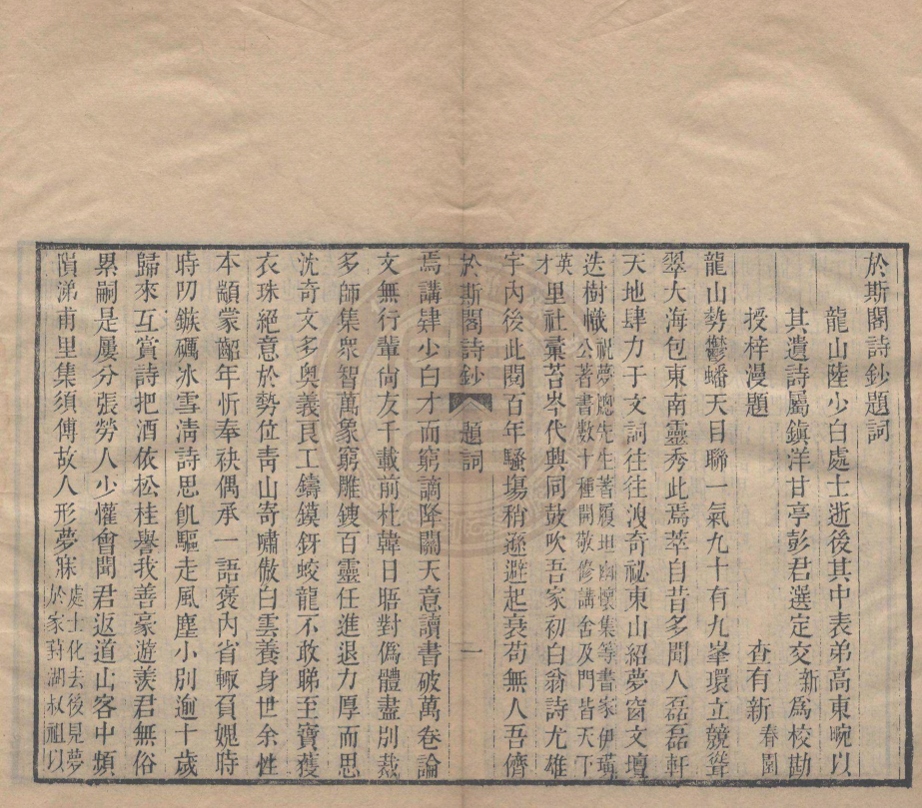 於斯閣詩鈔題詞
龍山陸少白處士逝後其中表弟高東畹以
其遺詩屬鎮洋甘亭彭君選定交新為校勘
授梓漫題
查有新 春園
龍山勢鬱蟠天目聯一氣九十有九峯環立競聳
翠大海包東南靈秀此焉萃自昔多聞人磊磊軒
天地肆力于文詞往往洩奇祕東山紹夢窗文壇
迭樹幟祝夢窗先生著履坦幽懷集等書家伊璜
公著書數十種開敬修講舍及門皆天下
英
才里社彙苔岑代興同鼓吹吾家初白翁詩尤雄
宇內後此閱百年騷場稍遜避起衰苟無人吾儕
於斯閣詩鈔 題詞 一
焉講肄少白才而窮謫降關天意讀書破萬卷論
文無行輩尙友千載前杜韓日晤對僞體盡別裁
多師集眾智萬象窮雕鎪百靈任進退力厚而思
沈奇文多奥義良工鑄鏌釾蛟龍不敢睇至寶穫
衣珠絕意於勢位靑山寄嘯傲白雲養身世余性
本顓蒙齠年忻奉袂偶承一語褒內省輒負媿時
時刅鏃礪冰雪淸詩思飢驅走風塵小別逾十歲
歸來互賞詩把酒依松桂譽我善豪遊羨君無俗
累嗣是屢分張勞人少懽會聞君返道山客中頻
隕涕甫里集須傳故人形夢寐處士化去後見夢
於家葑湖叔祖以